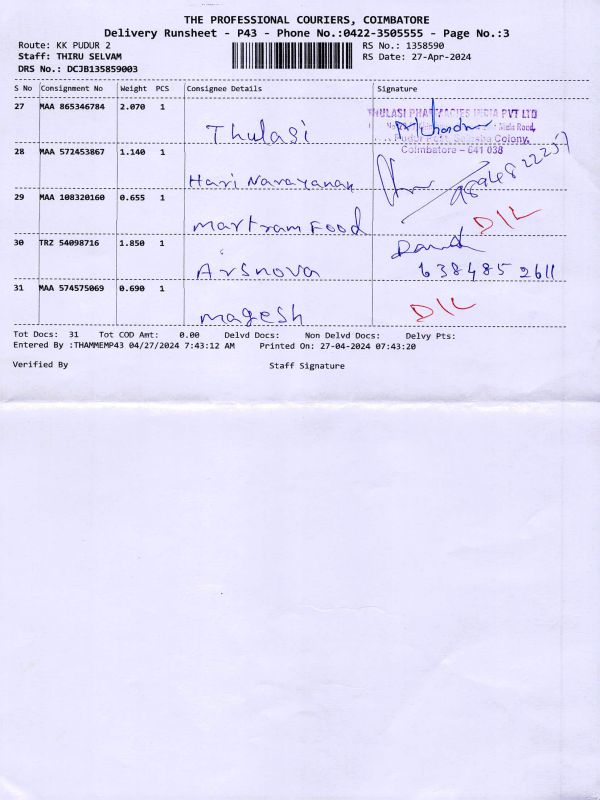 THE PROFESSIONAL COURIERS, COIMBATORE
Delivery Runsheet - P43 - Phone No.:0422-3505555 - Page No.:3
Route: KK PUDUR 2 RS No.: 1358590
Staff: THIRU SELVAM RS Date: 27-Apr-2024
DRS No.: DCJB135859003
S No Consignment No Weight PCS Consignee Details Signature
27 MAA 865346784 2.070 1 Thulasi
THULASI PHARMACIES INDIA PVT LTD
Colony,
Coimbatore - 641 038
28 MAA 572453867 1.140 1 Hari Narayanan
29 MAA 108320160 0.655 1 Martram Food D/L
30 TRZ 54098716 1.850 1 Arsnova David
6384852611
31 MAA 574575069 0.690 1 magesh D/L
Tot Docs: 31 Tot COD Amt: 0.00 Delvd Docs: Non Delvd Docs: Delvy Pts:
Entered By :THAMMEMP43 04/27/2024 7:43:12 AM Printed On: 27-04-2024 07:43:20
Verified By Staff Signature